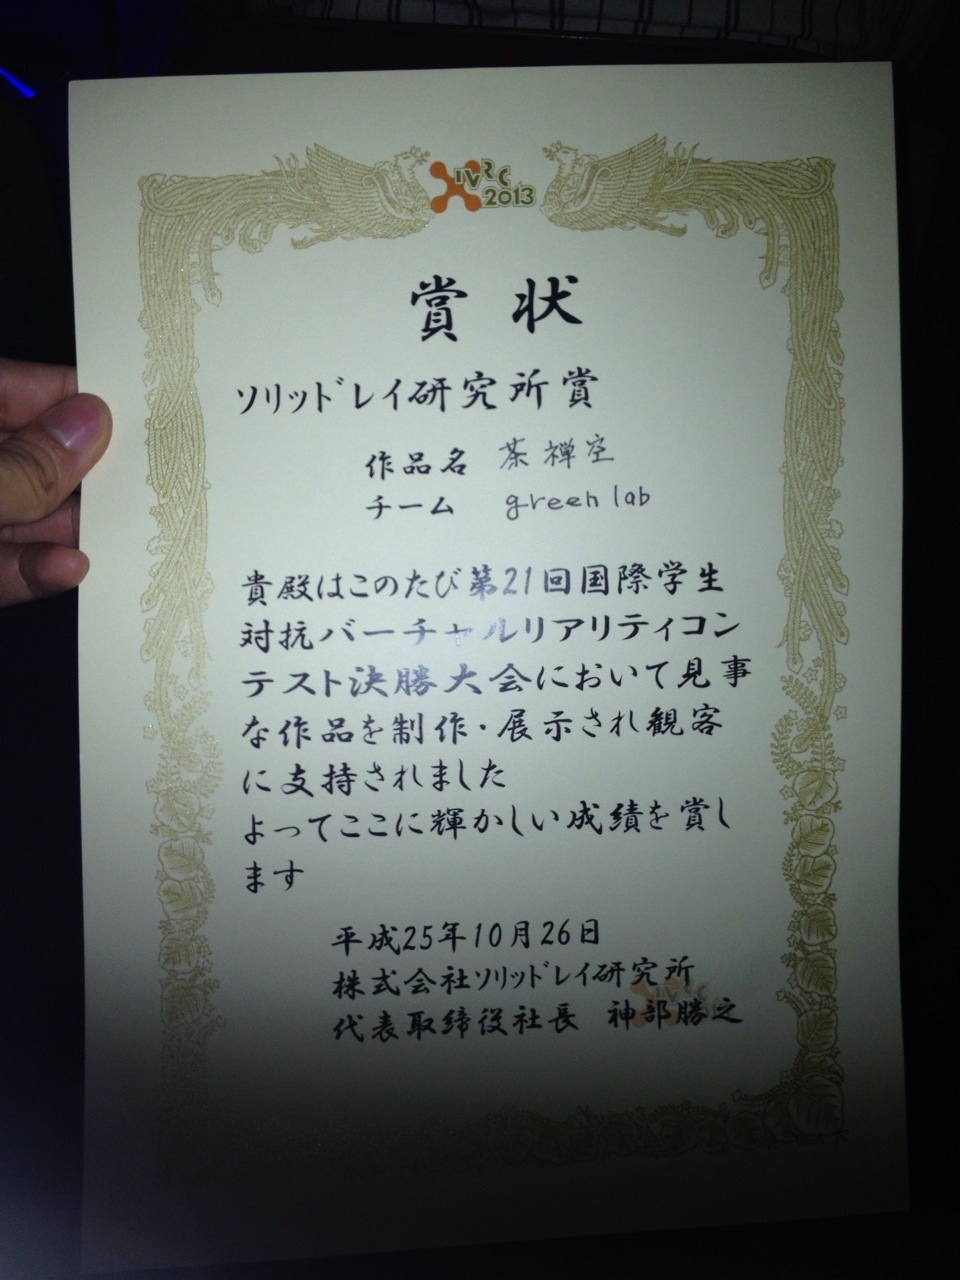 IVRC
2013
賞状
ソリッドレイ研究所賞
作品名 茶禅空
チーム green lab
貴殿はこのたび第21回国際学生
対抗バーチャルリアリティコン
テスト決勝大会において見事
な作品を制作・展示され観客
に支持されました
よってここに輝かしい成績を賞し
ます
平成25年10月26日
株式会社ソリッドレイ研究所
代表取締役社長 神部勝之